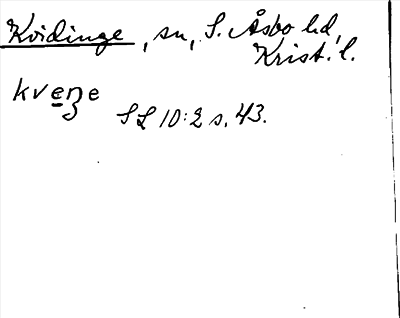 Kvidinge, sn, S. Åsbo hd,
Krist. l.
kveŋe
SL 10:2 s. 43.